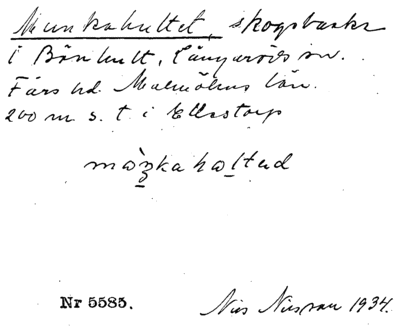 Munkahultet, skogsbacke
i Bönhult, Långaröds sn.
Färs hd. Malmöhus län.
200 m s. t i Ellstorp
Nr 5585.
Nils Nilsson 1934.